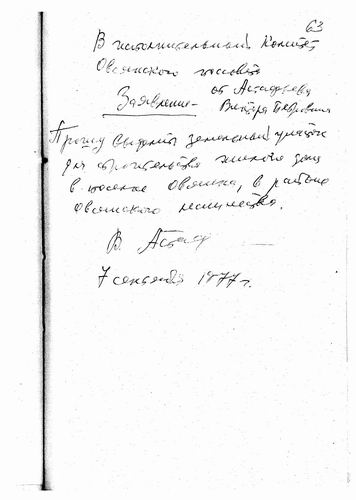 63
В исполнительный Комитет
Овсянского поссовета
от Астафьева
Заявление-
Виктора Петровича
Прошу выделить земельный участок
для строительства жилого дома
в поселке Овсянка, в районе
Овсянского лесничества.
В. Астаф
7 сентября 1977 г.